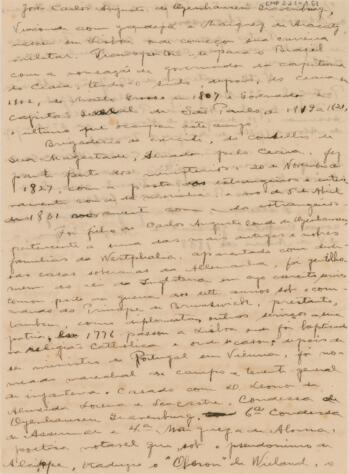 João Carlos Augusto de Oyenhausen
Visconde com grandeza e Marquez de Aracaty,
nasce em Lisboa e começou sua carreira
militar. Transportou-se para o Brazil
com a nomeação de governador da capitania
do Ceará, tendo o sido depois, do Ceará em
de Matto Grosso em 1807 e Governador e
capitão General de São Paulo, de 1819 a 1821,
o ultimo que occupou este cargo.
Brigadeiro do exercito, do conselho de
Sua Magestade, Senador pelo Ceará, fez
parte dos ministerios, 20 de Novembro
1827, com a pasta de estrangeiros e interi-
namente com a da marinha, e no de 5 de Abril
de 1831 com a de estrangeiros.
Foi filho de Carlos Augusto Conde de Oyenhausen,
pertencente a uma das mais antigas e nobres
familias da Westphalia, aparentada com
das casas soberanas da Allemanha, foi gentilho-
mem do rei de Inglaterra em cujo exercito
tomou parte na guerra dos sete annos sob o com-
mando do Principe de Brunswick, prestante,
tambem, como diplomata, outros serviços a sua
patria, Em 1776 passou a Lisboa onde foi baptisado
na religião Catholica e depois de
ser ministro de Portugal em Vienna, foi no-
meado marechal de campo e tenente general
de infanteria. Casado com D. Leonor de
Almeida Lorena e Lencastre, Condessa de
Oyenhausen Gravenburg, 6ª Condessa
de Assumar e 4ª Marqueza de Alorna,
poetisa notavel que, sob o pseudonimo de
Alcippe, traduziu o "Oberon" de Wieland, o